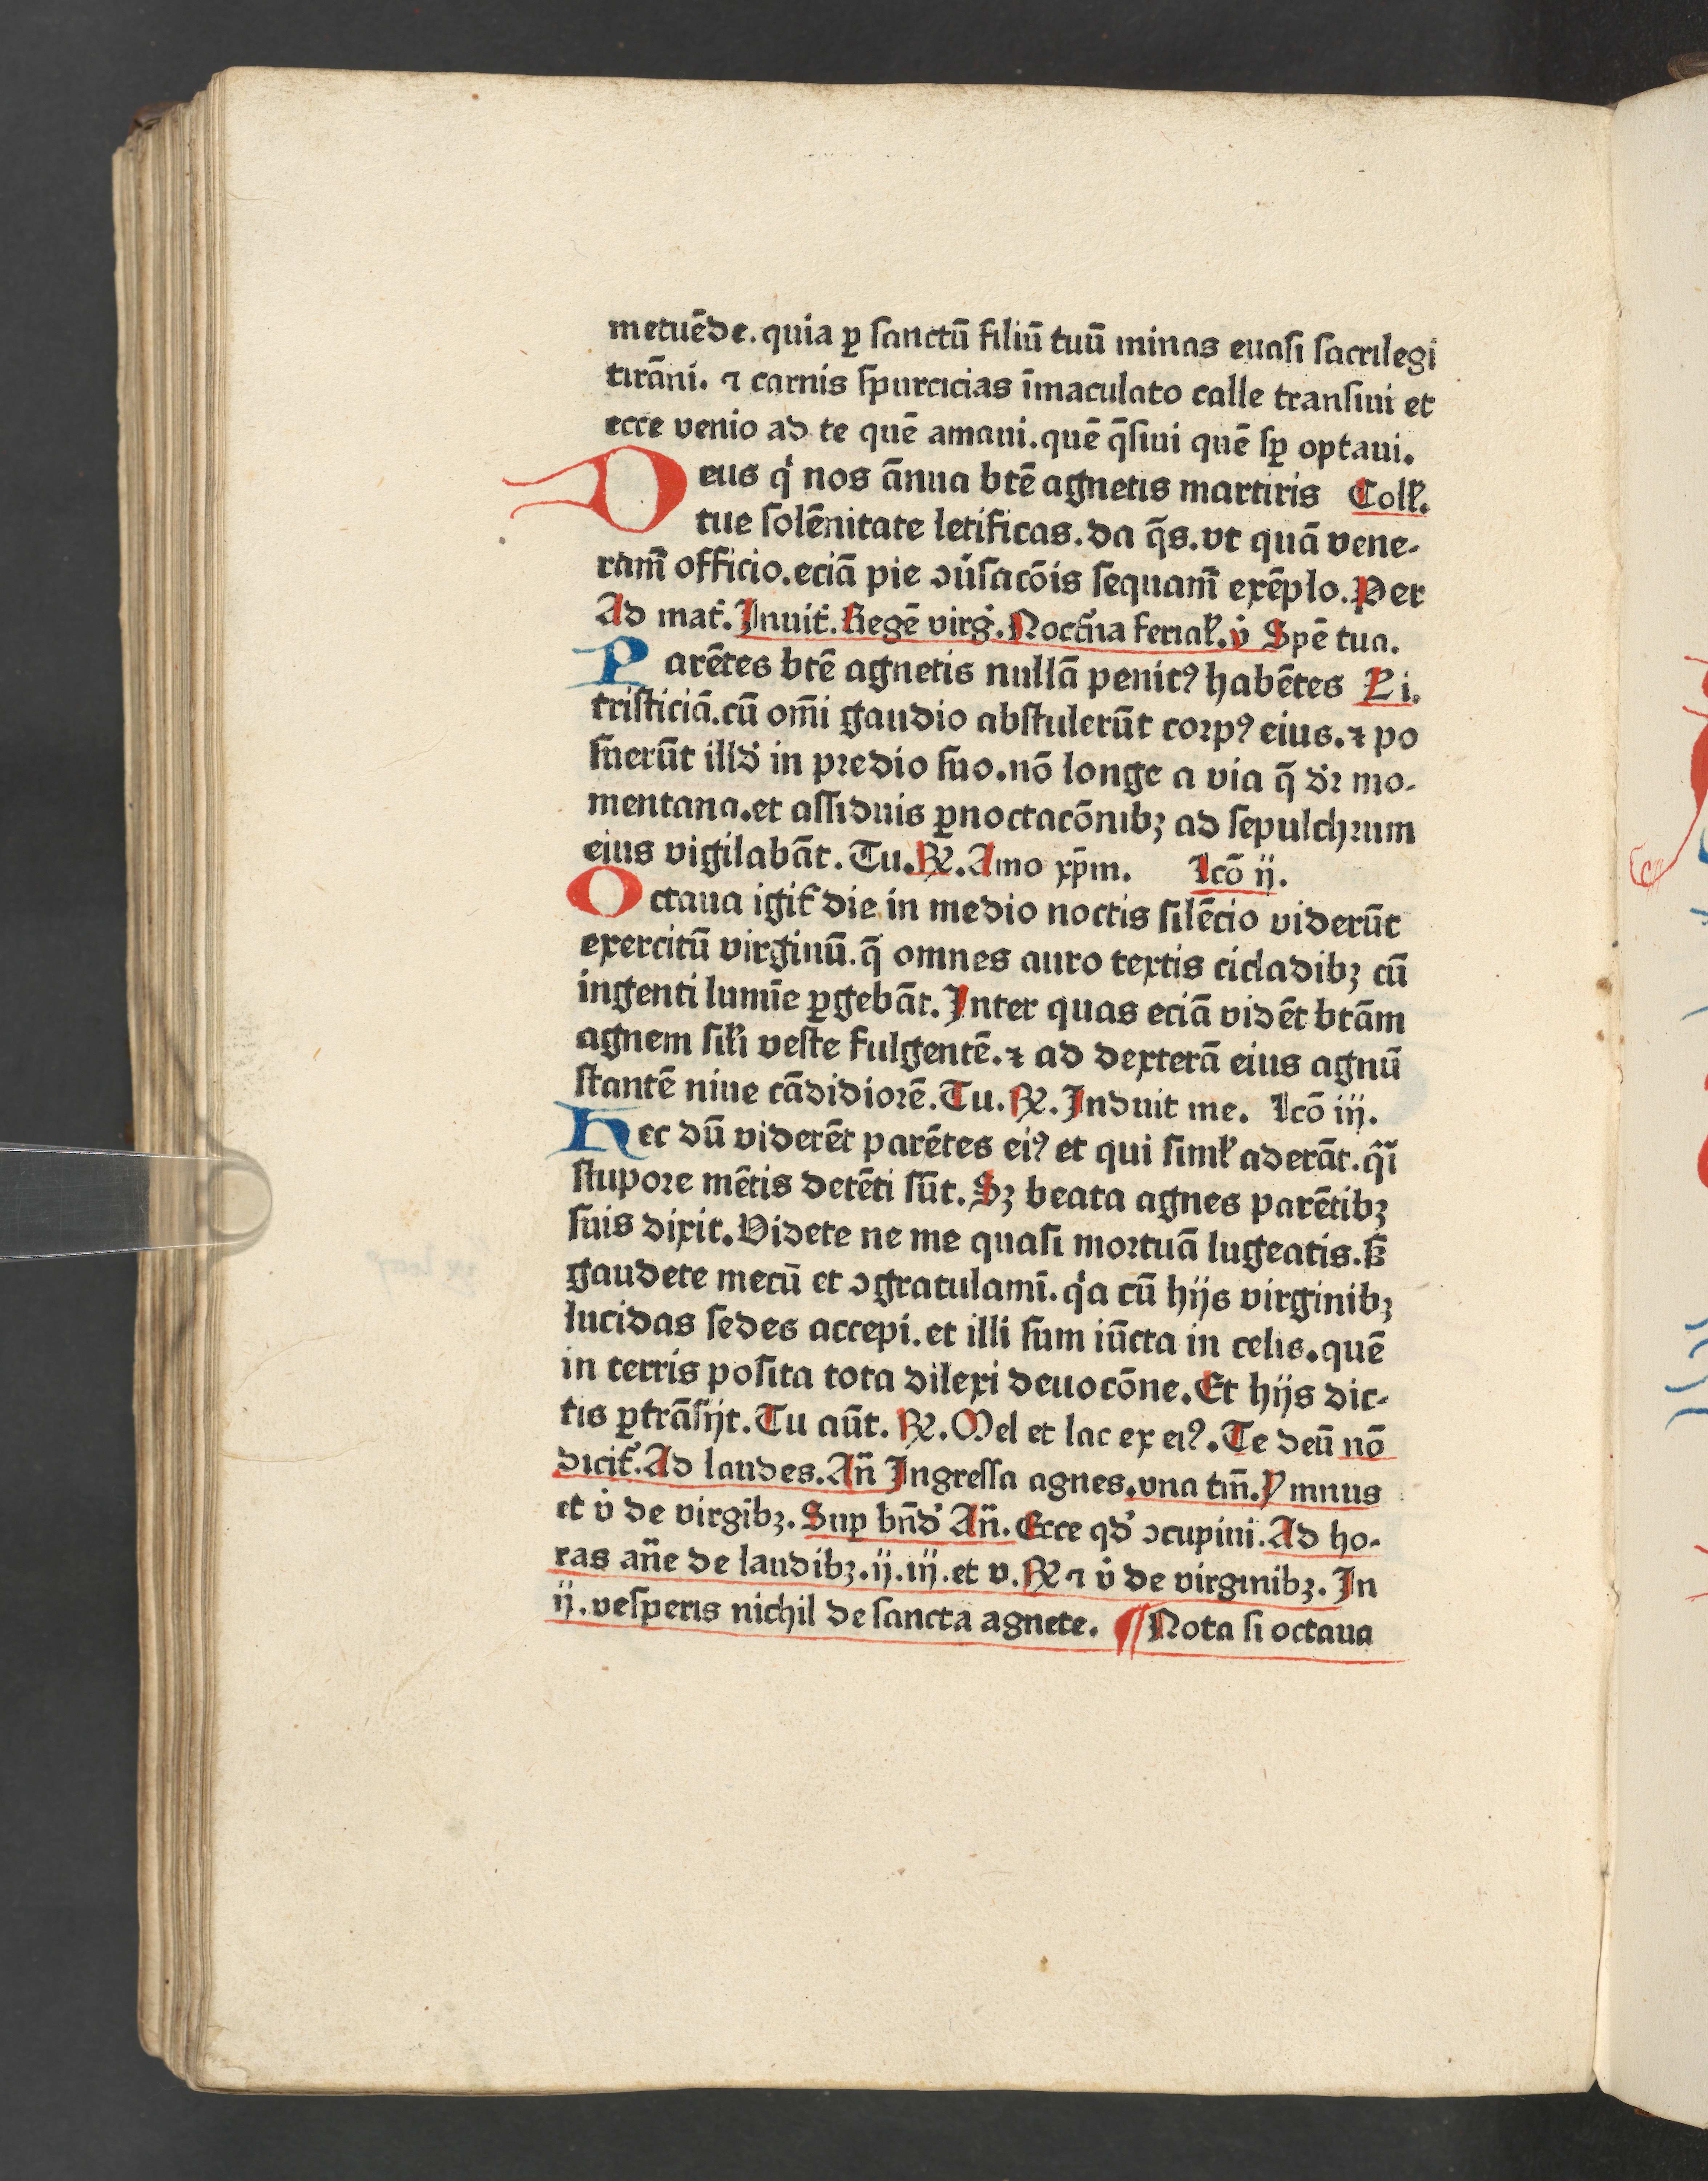 metuēde. quia ꝑ sanctū filiū tuū minas euasi sacrilegi
tirāni. ⁊ carnis spurcicias īmaculato calle transiui et
ecce venio ad te quē amaui. quē q̄siui quē sꝑ optaui.
Deus qͥ nos ānua btē agnetis martiris Coll.
tue solēnitate letificas. da q̄s. vt quā vene-
ram̄ officio. eciā pie ↄūsacōis sequam̄ exēplo. Per
Ad mat. Inuit. Regē virg. Noct̄na ferial. v̇ Spē tua.
Parētes btē agnetis nullā penitꝰ habētes L i.
tristiciā. cū om̄i gaudio abstulerūt corpꝰ eius. ⁊ po
suerūt illd̓ in predio suo. nō longe a via q̄ dr̄ mo-
mentana. et assiduis ꝑnoctacōnibꝫ ad sepulchrum
eius vigilabāt. Tu. ℟. Amo xp̄m. Lcō ij.
Octaua igit᷑ die in medio noctis silēcio viderūt
exercitū virginū. q̄ omnes auro textis cicladibꝫ cū
ingenti lumīe ꝑgebāt. Inter quas eciā vidēt btām
agnem sil̓i veste fulgentē. ⁊ ad dexterā eius agnū
stantē niue cādidiorē. Tu. ℟. Induit me. Lcō iij.
Hec dū viderēt parētes eiꝰ et qui siml̓ aderāt. qͣi
stupore mētis detēti sūt. Sꝫ beata agnes parētibꝫ
suis dixit. Videte ne me quasi mortuā lugeatis. sꝫ
gaudete mecū et ↄgratulamī. qͥa cū hijs virginibꝫ
lucidas sedes accepi. et illi sum iūcta in celis. quē
in terris posita tota dilexi deuocōne. Et hijs dic-
tis ꝑtrāsijt. Tu aūt. ℟. Mel et lac ex eiꝰ. Te deū nō
dicit᷑. Ad laudes. An̄ Ingressa agnes. vna tm̄. Ymnus
et v̇ de virgībꝫ. Suꝑ bn̄d̓ An̄. Ecce qd̓ ↄcupiui. Ad ho-
ras an̄e de laudibꝫ. ij. iij. et v. ℟ ⁊ v̇ de virginibꝫ. In
ij. vesperis nichil de sancta agnete. ¶ Nota si octaua